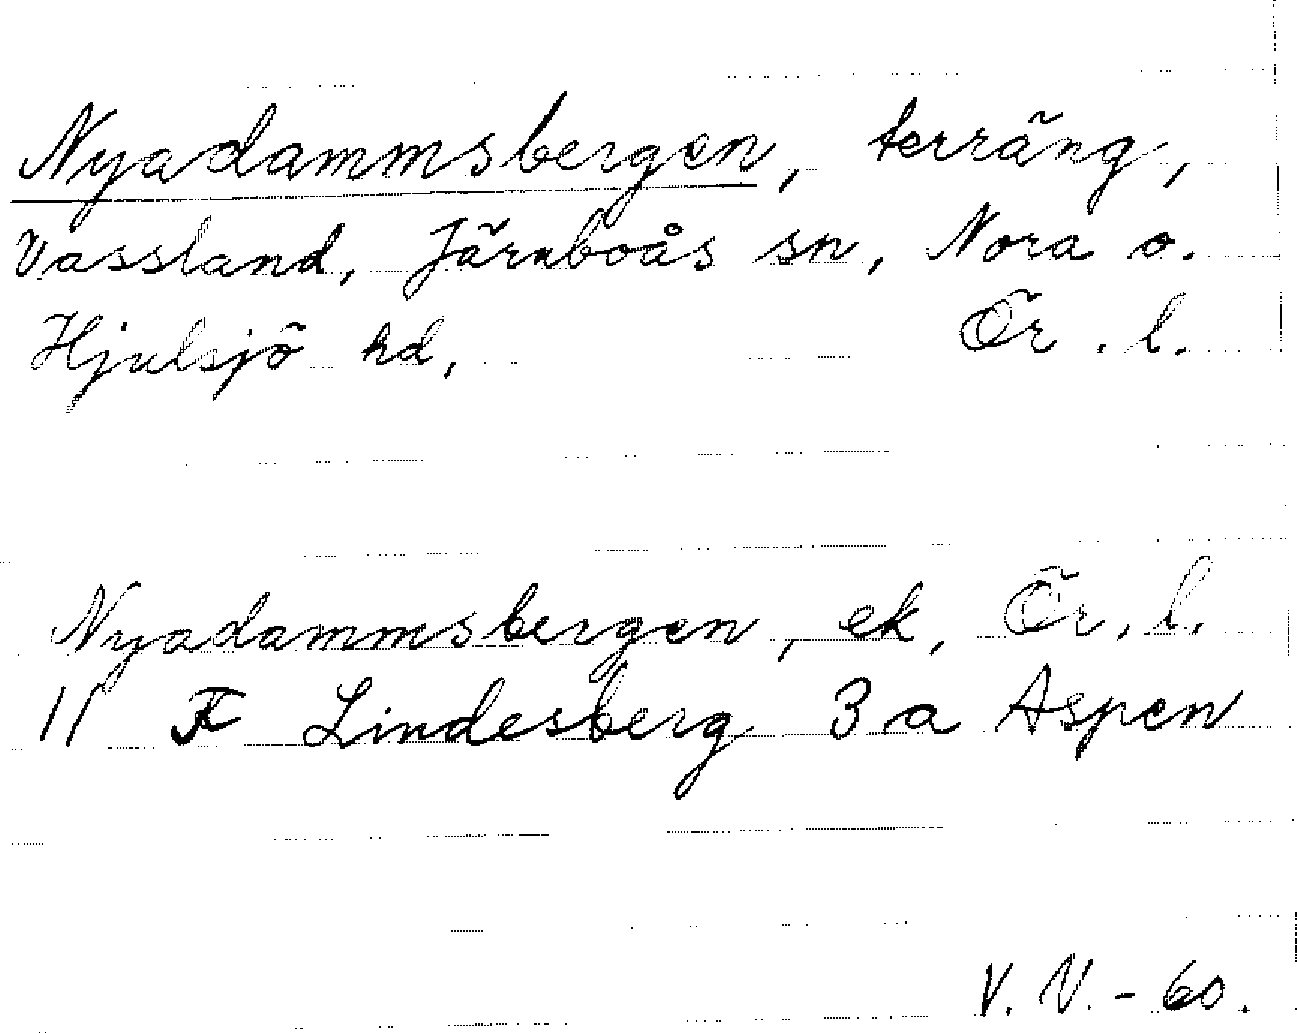 Nyadammsbergen, terräng,
Vassland, Järnboås sn, Nora o.
Hjulsjö hd, Ör. l.
Nyadammsbergen, ek, Ör. l.
11 F Lindesberg 3 a Aspen
V. V. - 60.